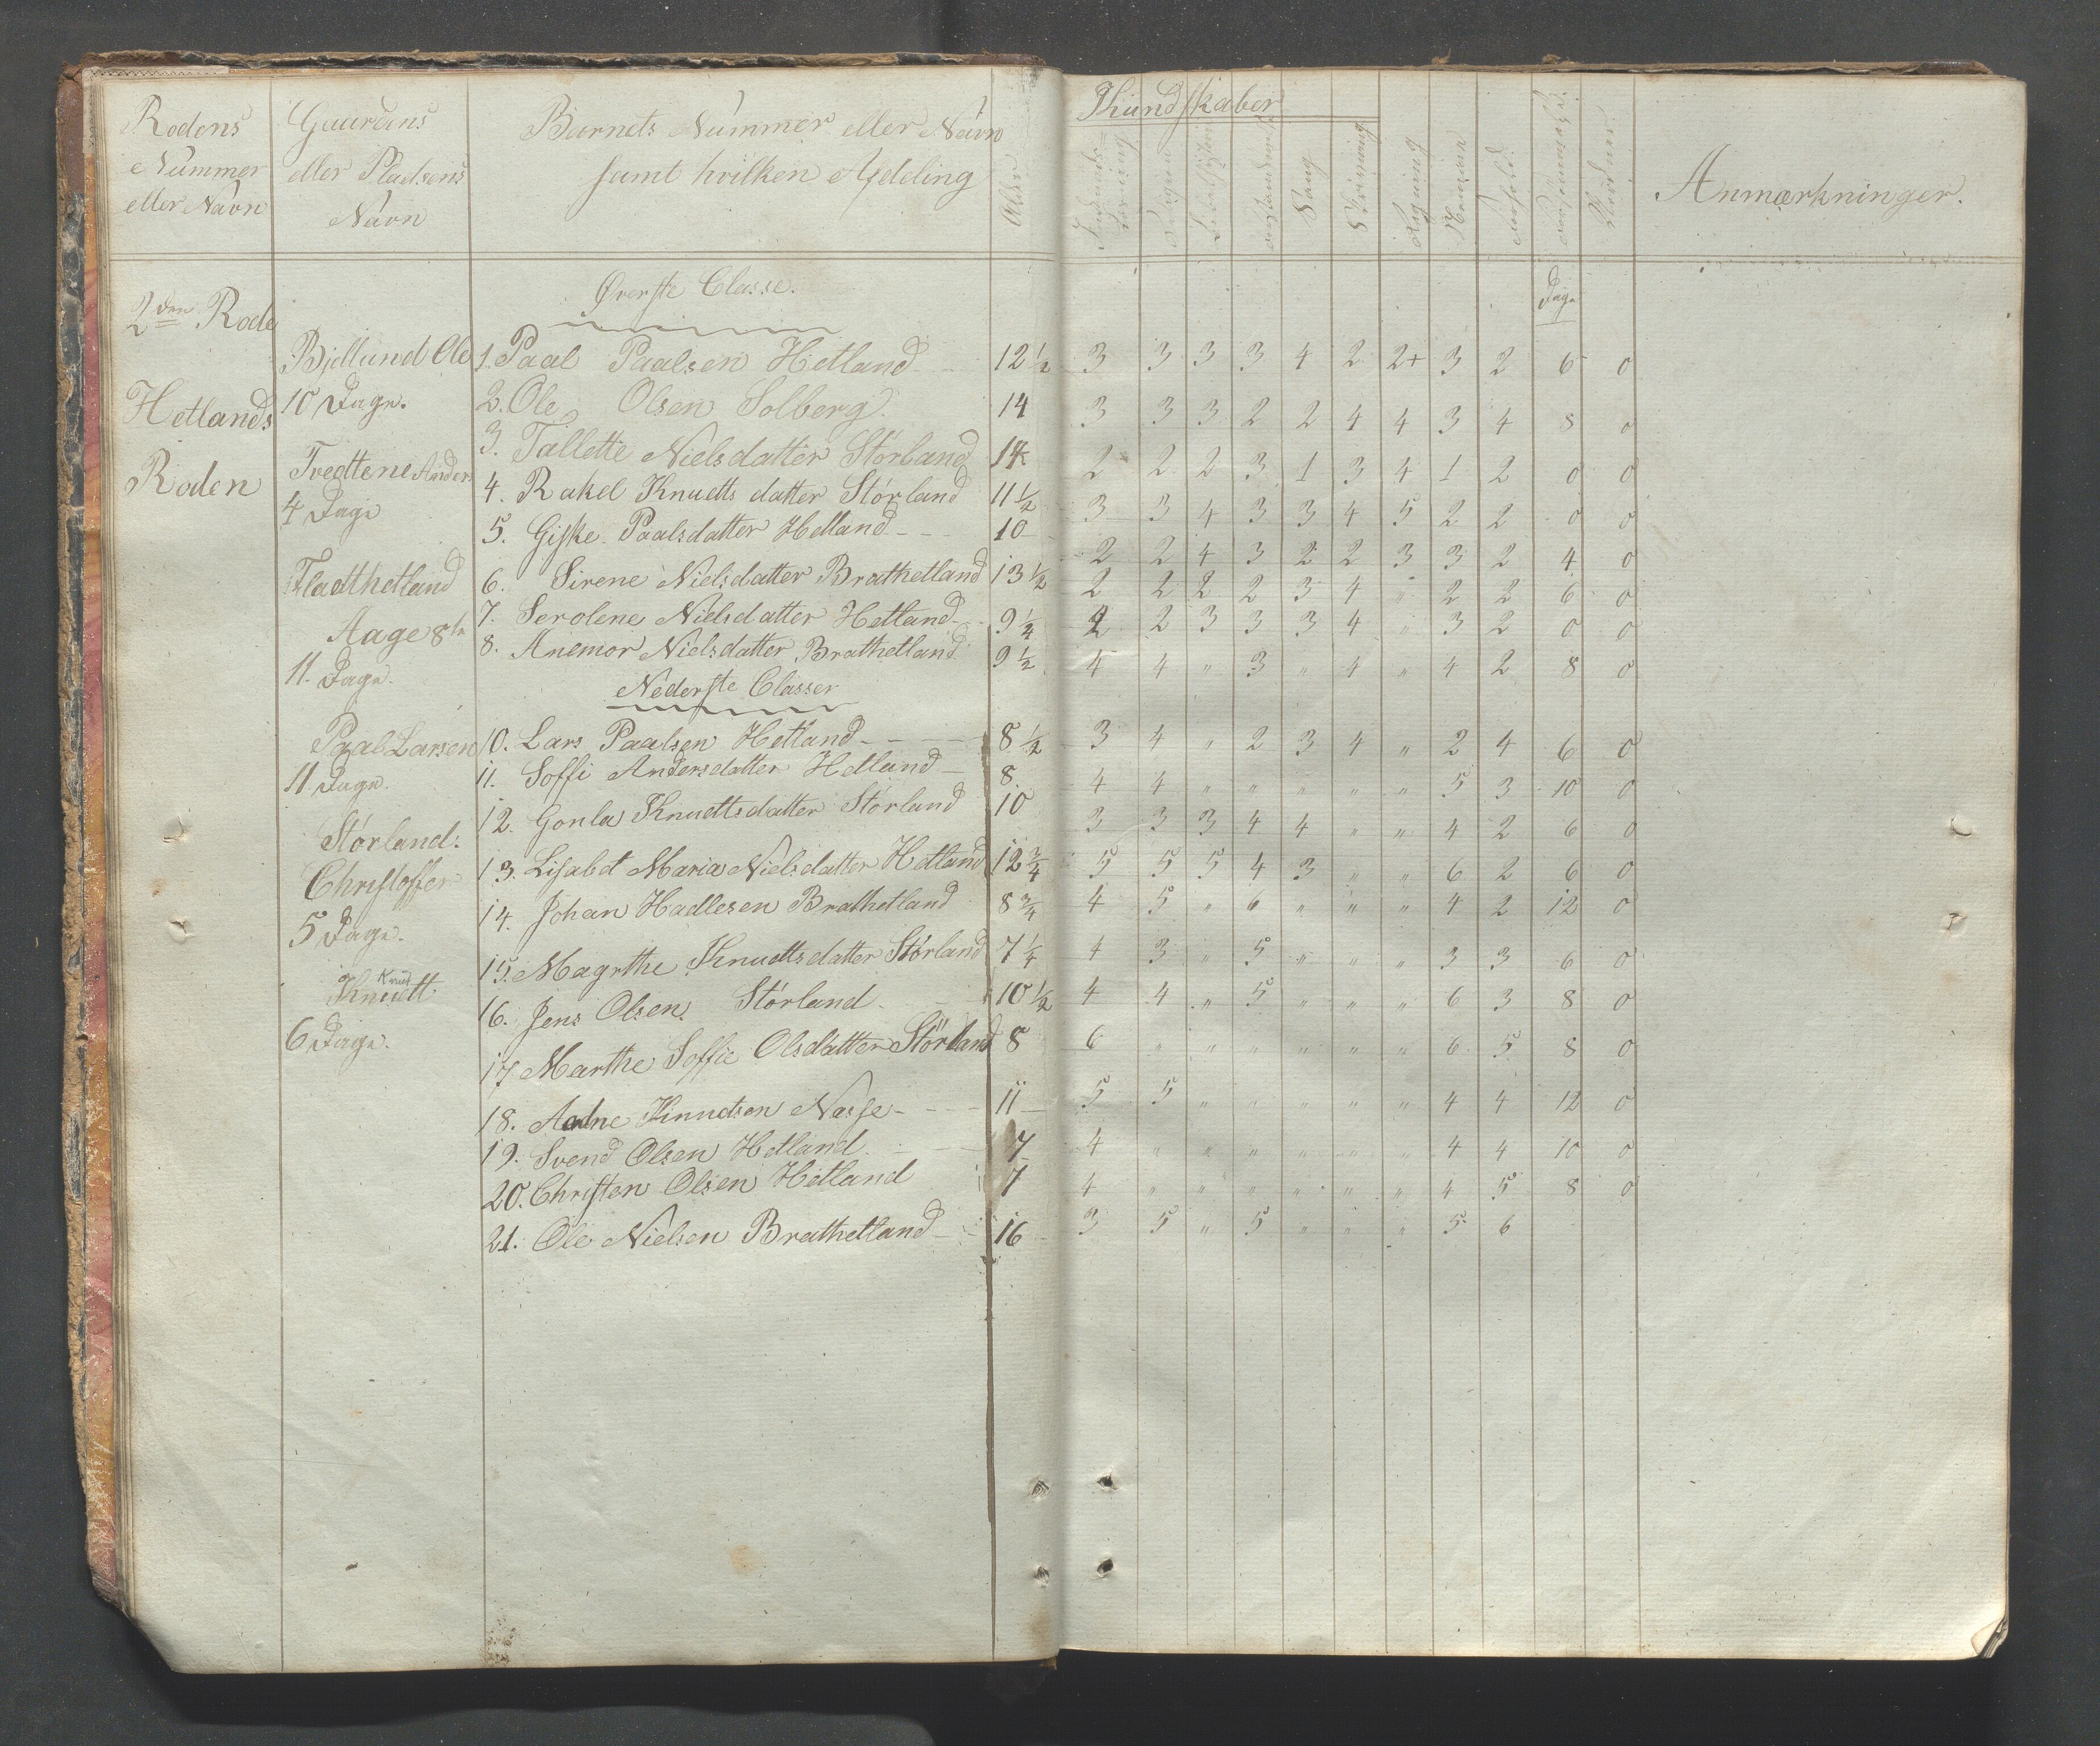 Rodens
Nummer
eller Navn
Gaardens
eller Pladsens
Navn
Barnets Nummer eller Navn
samt hvilken Afdeling
Alder
Khundskaber
Sang
Skrivning
Regning
Anmærkninger.
2den Rode
Hetlands
Roden
Bjellund Ole
10 Dage.
Tvedtene Anders
4 Dage
Fladthetland
Aage 8te
11. Dage.
Paal Larsen
11 Dage.
Störland:
Christoffer
5 Dage.
Knud
Knudtt
6 Dage.
Øverste Classe.
Dage
1. Paal Paalsen Hetland 12 1/2 3 3 3 3 4 2 2+ 3 2 6 0
2. Ole Olsen Solberg. 14 3 3 3 2 2 4 4 3 4 8 0
3. Tallette Nielsdatter Störland 14 2 2 2 3 1 3 4 1 2 0 0
4. Rakel Knudtsdatter Störland 11 1/2 3 3 4 3 3 4 5 2 2 0 0
5. Giske Paalsdatter Hetland - - - 10 2 2 4 3 2 2 3 3 2 4 0
6. Sirene Nielsdatter Brathetland 13 1/2 2 2 2 2 3 4 " 2 2 6 0
7. Serolene Nielsdatter Hetland 9 1/4 2 2 3 3 3 4 " 3 2 0 0
8. Anemor Nielsdatter Brathetland 9 1/2 4 4 " 3 " 4 " 4 2 8 0
Nederste Classer
10. Lars Paalsen Hetland - - - - 8 1/2 3 4 " 2 3 4 " 2 4 6 0
11. Soffi Andersdatter Hetland - 8 4 4 " " " " " 5 3 10 0
12. Gonla Knudttsdatter Störland 10 3 3 3 4 4 " " 4 2 6 0
13. Lisabet Maria Nielsdatter Hetland 12 3/4 5 5 5 4 3 " " 6 2 6 0
14. Johan Hadlesen Brathetland 8 3/4 4 5 " 6 " " " 4 2 12 0
15. Magrthe Knudttsdatter Störland 7 1/4 4 3 " 5 " " " 3 3 6 0
16. Jens Olsen Störland 10 1/2 4 4 " 5 " " " 6 3 8 0
17 Marthe Soffie Olsdatter Störland 8 6 " " " " " " 6 5 8 0
18. Adne Knudsen Nasse - - - 11 5 5 " " " " " 4 4 12 0
19. Svend Olsen Hetland 7 4 " " " " " " 4 4 10 0
20. Christen Olsen Hetland 7 4 " " " " " " 4 5 8 0
21. Ole Nielsen Brathetland - 16 3 5 " 5 " " " 5 6